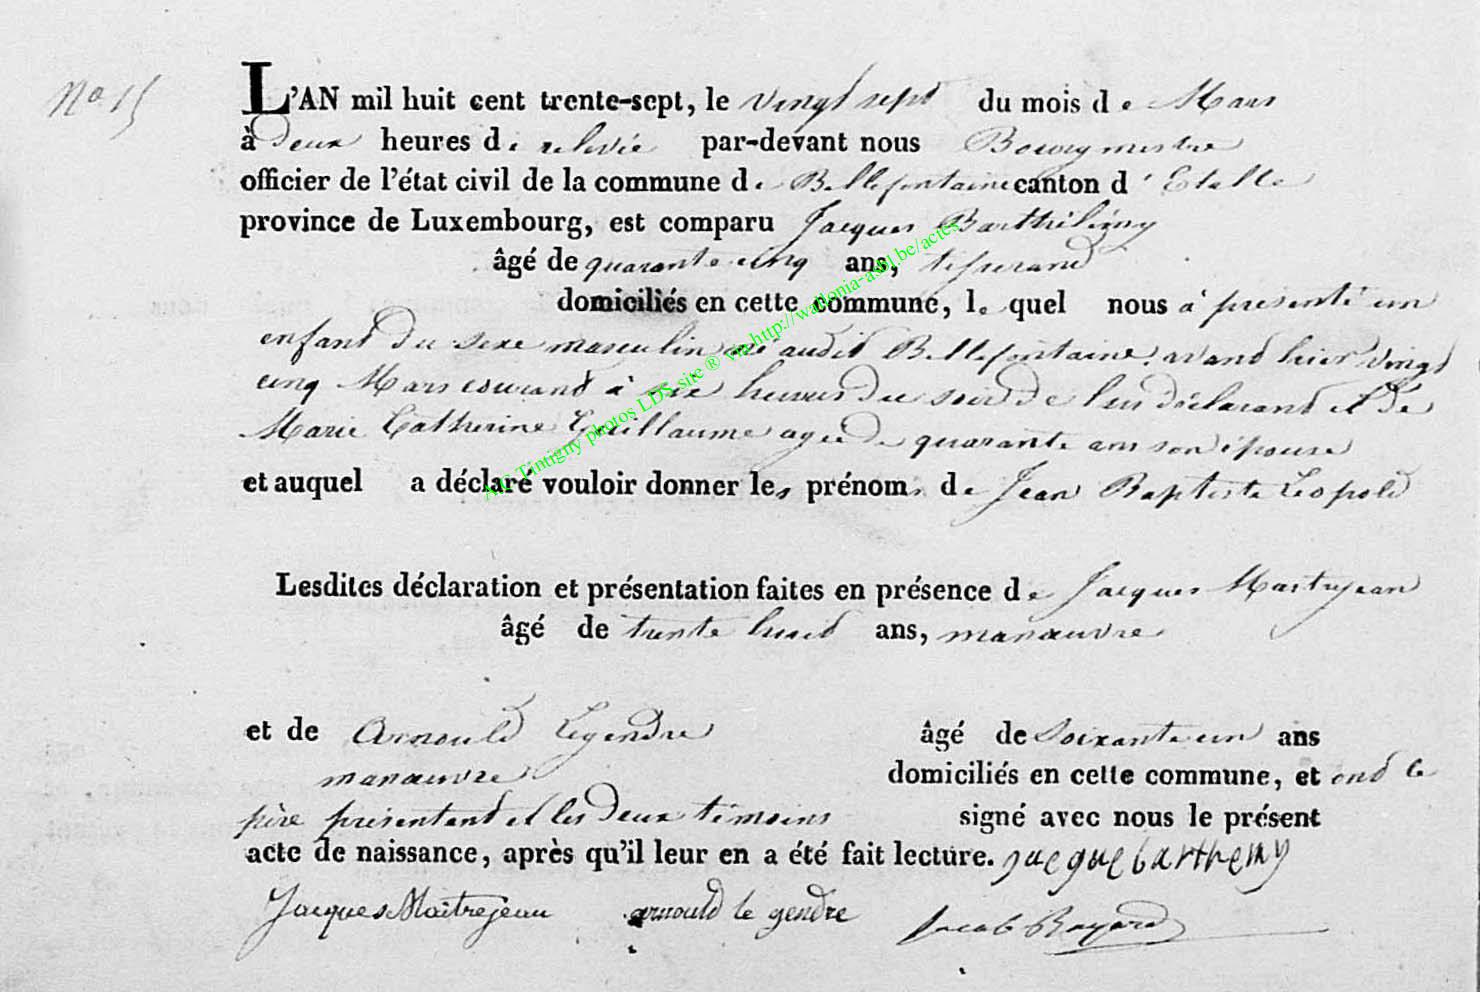 No 15
L'AN mil huit cent trente-sept, le vingt sept du mois de Mars
à deux heures de relevée par-devant nous Bourgmestre
officier de l'état civil de la commune de Bellefontaine canton d'Etalle
province de Luxembourg, est comparu Jacques Barthélémy
âgé de quarante cinq ans, tisserand
domiciliés en cette commune, le quel nous à presenté un
enfant du sexe masculin né audit Bellefontaine avant hier vingt
cinq Mars courant à six heures du soir de lui déclarant et de
Marie Catherine Guillaume agée de quarante ans son épouse
et auquel a déclaré vouloir donner les prénoms de Jean Baptiste Léopold
Lesdites déclaration et présentation faites en présence de Jacques Maitrejean
âgé de trente huit ans, manœuvre
et de Arnould Legendre âgé de Soixante un ans
manœuvre domiciliés en cette commune, et ont le
père présentant et les deux témoins signé avec nous le présent
acte de naissance, après qu'il leur en a été fait lecture. jacque barthemy
Jacques Maitrejean arnould le gendre Jacob Rayard
AC Tintigny photos LDS site ® via http://wallonia-asbl.be/actes